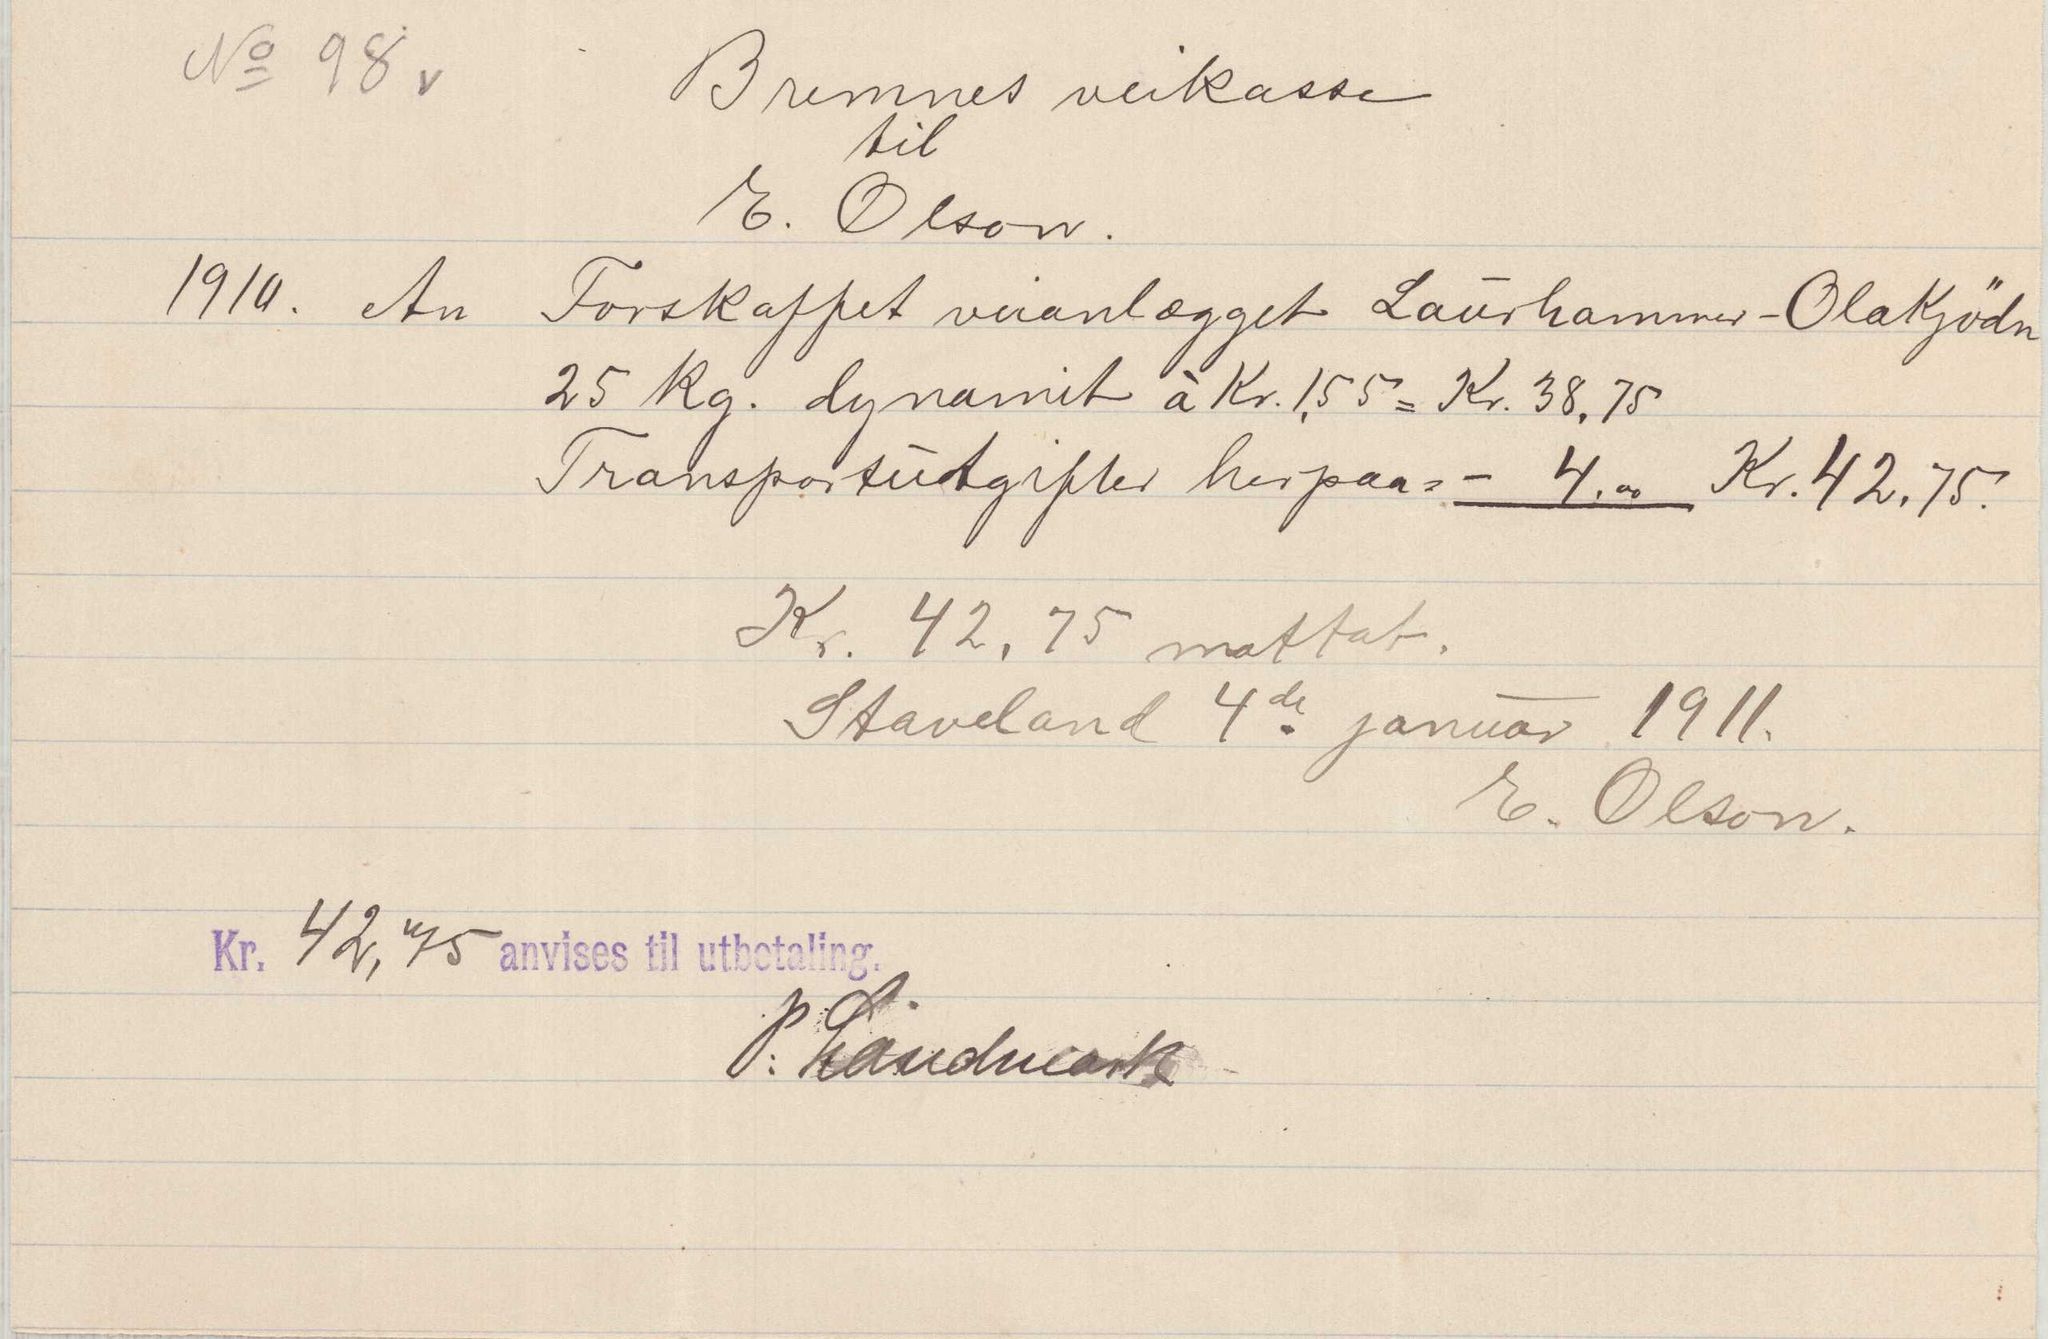 No 98 v
Bremnes veikasse
til
E. Olson.
1910. An Forskaffet veianlægget Laurhammer-Olakjödn
25 kg. dynamit à Kr. 1,55 = Kr. 38,75
Transportutgifter herpaa = - 4,00 Kr. 42,75.
Kr. 42,75 mottat.
Staveland 4de januar 1911.
E. Olson.
Kr. 42,75 anvises til utbetaling.
P. Landmark